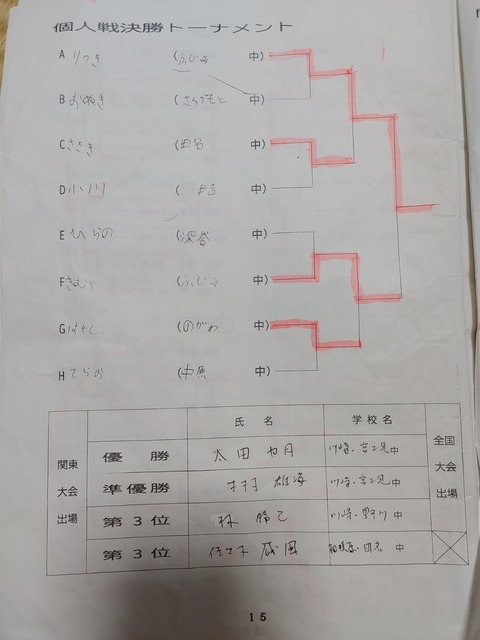 個人戦決勝トーナメント
A (ふじみ 中)
B (さかもと 中)
C ささき (田名 中)
D 小川 ( 中)
E ひらの (深谷 中)
F きむら (ふじみ 中)
G はやし (のがわ 中)
H てらお (中原 中)
氏 名 学校名
関東大会出場
優 勝 太田 川崎・富士見中
準優勝 木村 雄海 川崎・富士見中
第3位 林 勝己 川崎・野川 中
第3位 佐々木 相模原・田名 中
全国大会出場
15